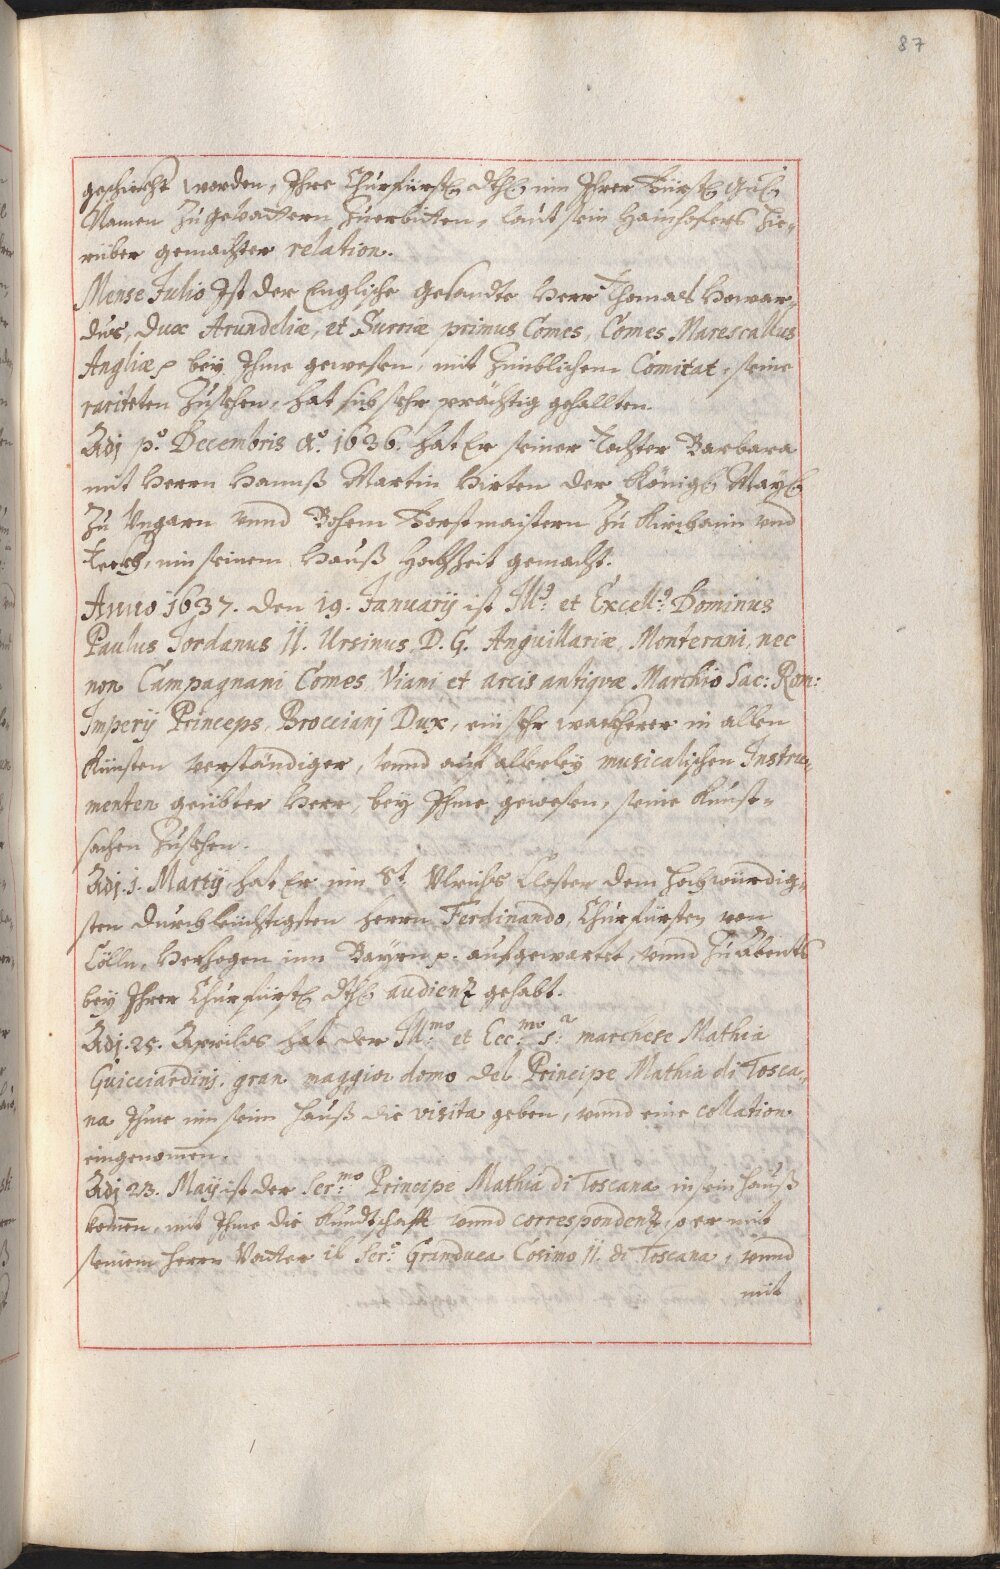 87
geschickt worden, Ihre Churfürstl. dhl. im Ihrer Fürstl. Gdl.
Namen zu gevattern Zuerbitten, laut sein Hainhofers hie-
rüber gemachter relation.
Mense Julio Ist der Englische Gesandte Herr Thomas Howar-
dus, Dux Arundeliæ, et Surriæ primus Comes, Comes Marescallus
Angliæ p bey Ihme gewesen, mit Zimblichem Comitat, seine
rariteten Zusehen, hat sich sehr prächtig gehallten.
Adj pº. Decembris Aº. 1636. hat Er seiner Tochter Barbara
mit Herrn Hannß Martin Hirten der Königl. Mayl.
Zu Ungarn vnnd Bohem Forstmaistern Zu Kirchaim vnd
Teckh, inn seinem Hauß Hochzeit gemacht.
Anno 1637. den 19. Januarij ist Ill.9 et Excell.9 Dominus
Paulus Jordanus II. Ursinus, D. G. Anguillariæ, Monterani, nec
non Campagnani Comes, Viani et arcis antiqvæ Marchio Sac: Rom:
Imperij Princeps, Brocciani Dux, ein sehr wackherer in allen
Künsten verständiger, vnnd auf allerley musicalischen Instru-
menten geübter Herr, bey Ihme gewesen, seine Kunst-
sachen Zusehen.
Adj. 1. Martij hat Er inn St. Ulrichs Closter dem hochwürdig-
sten durchleüchtigsten herrn Ferdinando, Churfürsten von
Cölln, Hertzogen inn Bayrn p. aufgewartet, vnnd Zu abents
bey Ihrer Churfürstl. dhl. audienz gehabt.
Adj. 25. Aprilis hat der Ill.mo et Ecc.mo S.r marchese Mathia
Guicciardinj, gran maggior domo del Principe Mathia di Tosca-
na Ihme inn seim Hauß die visita geben, vnnd eine collation
eingenomen.
Adj 23. Maij ist der Ser.mo Principe Mathia di Toscana in sein Hauß
komen, mit Ihme die Kundtschafft vnnd correspondenz, so er mit
seinem herrn Vatter il Ser.º Granduca Cosimo II. di Toscana, vnnd
mit